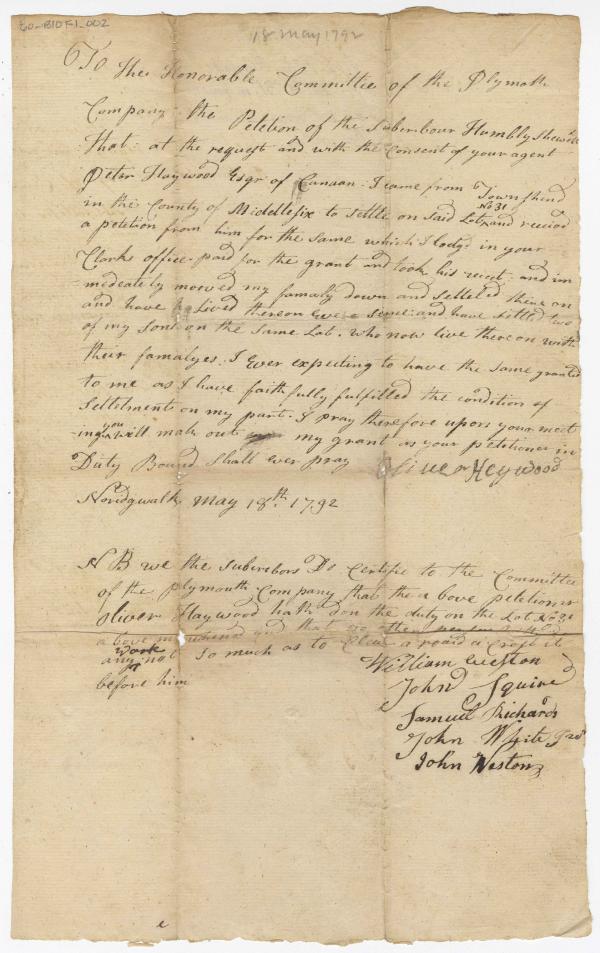 60-B10F1-002
18 May 1792
To the Honorable Committee of the Plymoth
Company the Petetion of the Subscribour Humbly Sheweth
That: at the request and with the Consent of your agent
Peter Haywood Esqr of Canaan I came from Townshend
in the County of Middellsix to Settle on Said Lot No 31 and receivd
a petetion from him for the same which I lodgd in your
Clarks office paid for the grant and took his receit, and im
-medeately moved my famaly down and Setteled them on
and have lived thereon Ever since: and have Sittled two
of my Sons on the Same Lot. who now live thereon with
their famalyes. I Ever expecting to have the same granted
to me as I have faithfully fulfilled the condition of
Settelment on my part. I pray therefore upon your meet
-ing you will make out my grant as your petitioner in
Duty Bound Shall ever pray Oliver Heywood
Noridgwalk May 18th 1792
N B we the Subscribors Do Certifie to the Committee
of the Plymouth Company that the above petitioner
Oliver Haywood hath don the duty on the Lot No 31
above and that no other
any work not So much as to Clear a road a Crost it
before him
William Weston
John Squire
Samuel Richards
John White
John Weston